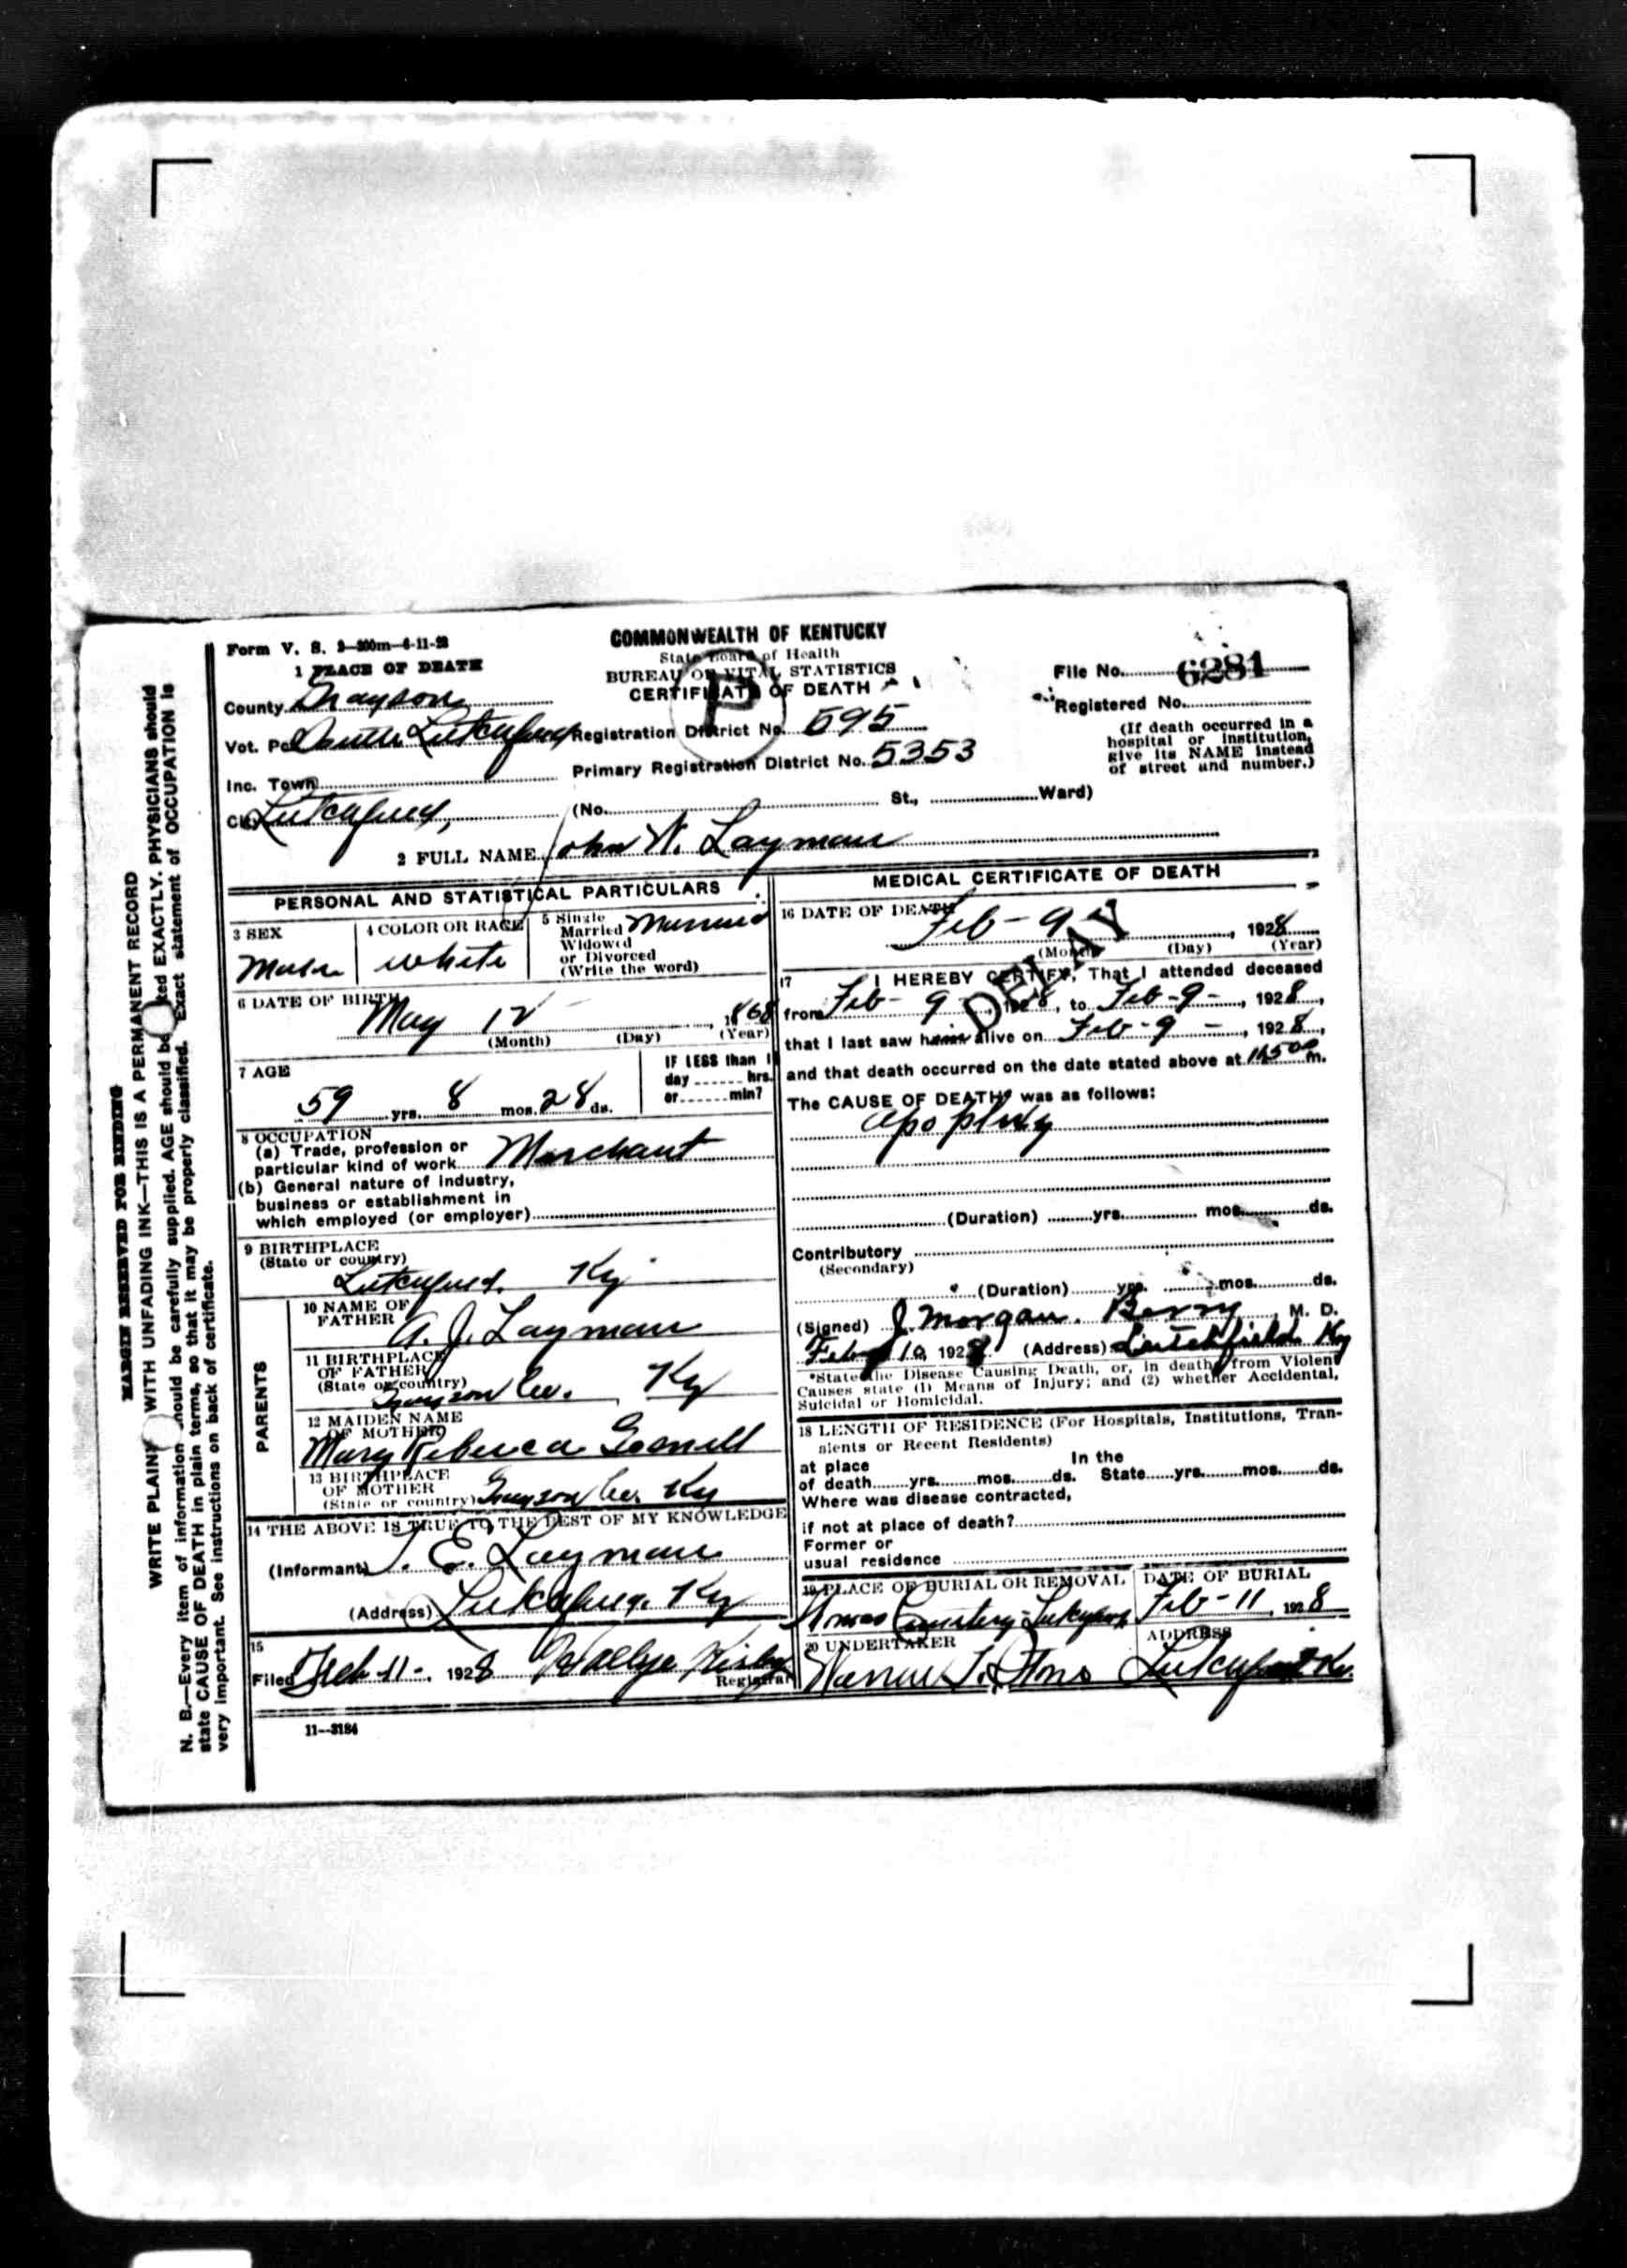 Form V. S. 2-200m-6-11-23
COMMONWEALTH OF KENTUCKY
State Board of Health
BUREAU OF VITAL STATISTICS
CERTIFICATE OF DEATH
P
File No. 6281
Registered No.
(If death occurred in a
hospital or institution,
give its NAME instead
of street and number.)
1 PLACE OF DEATH
County Grayson
Vot. Pct. Leitchfield Registration District No. 595
Inc. Town Primary Registration District No. 5353
City Leitchfield, (No. St., Ward)
2 FULL NAME John W. Layman
PERSONAL AND STATISTICAL PARTICULARS
3 SEX
Male
4 COLOR OR RACE
white
5 Single
Married
Widowed
or Divorced
(Write the word)
Married
6 DATE OF BIRTH
May 12, 1868
(Month) (Day) (Year)
7 AGE
59 yrs. 8 mos. 28 ds.
IF LESS than 1
day hrs.
or min?
8 OCCUPATION
(a) Trade, profession or
particular kind of work Merchant
(b) General nature of industry,
business or establishment in
which employed (or employer)
9 BIRTHPLACE
(State or country)
Leitchfield. Ky
PARENTS
10 NAME OF
FATHER A. J. Layman
11 BIRTHPLACE
OF FATHER
(State or country)
Grayson Co. Ky
12 MAIDEN NAME
OF MOTHER
Mary Rebecca
13 BIRTHPLACE
OF MOTHER
(State or country) Grayson Co. Ky
14 THE ABOVE IS TRUE TO THE BEST OF MY KNOWLEDGE
(Informant) E. Layman
(Address) Leitchfield. Ky
15
Filed Feb 11-, 1928
Registrar
11-3184
MEDICAL CERTIFICATE OF DEATH
16 DATE OF DEATH
Feb - 9, 1928
(Month) (Day) (Year)
DELAY
17 I HEREBY CERTIFY, That I attended deceased
from Feb - 9, 1928, to Feb - 9 -, 1928,
that I last saw him alive on Feb - 9 -, 1928,
and that death occurred on the date stated above at m.
The CAUSE OF DEATH* was as follows:
apoplexy
(Duration) yrs. mos. ds.
Contributory
(Secondary)
(Duration) yrs. mos. ds.
(Signed) J. Morgan. Berry, M. D.
Feb 10, 1928 (Address) Leitchfield Ky
*State the Disease Causing Death, or, in deaths from Violent
Causes state (1) Means of Injury; and (2) whether Accidental,
Suicidal or Homicidal.
18 LENGTH OF RESIDENCE (For Hospitals, Institutions, Tran-
sients or Recent Residents)
at place In the
of death yrs. mos. ds. State yrs. mos. ds.
Where was disease contracted,
if not at place of death?
Former or
usual residence
19 PLACE OF BURIAL OR REMOVAL
Cemetery-Leitchfield
DATE OF BURIAL
Feb-11, 1928
20 UNDERTAKER
ADDRESS
Leitchfield Ky.
MARGIN RESERVED FOR BINDING
WRITE PLAINLY WITH UNFADING INK—THIS IS A PERMANENT RECORD
N. B.—Every item of information should be carefully supplied. AGE should be stated EXACTLY. PHYSICIANS should
state CAUSE OF DEATH in plain terms, so that it may be properly classified. Exact statement of OCCUPATION is
very important. See instructions on back of certificate.